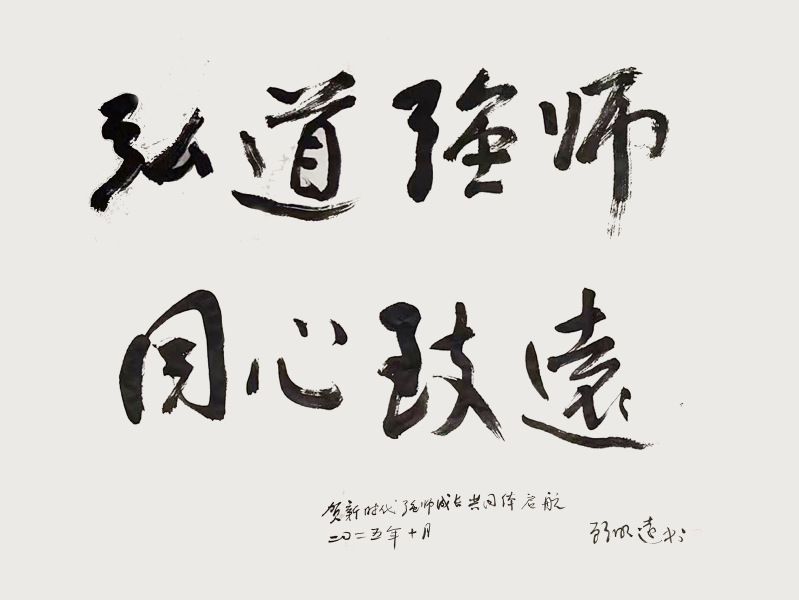 弘道强师
同心致遠
贺新时代强师成长共同体启航
二〇二五年十月
顾明远书